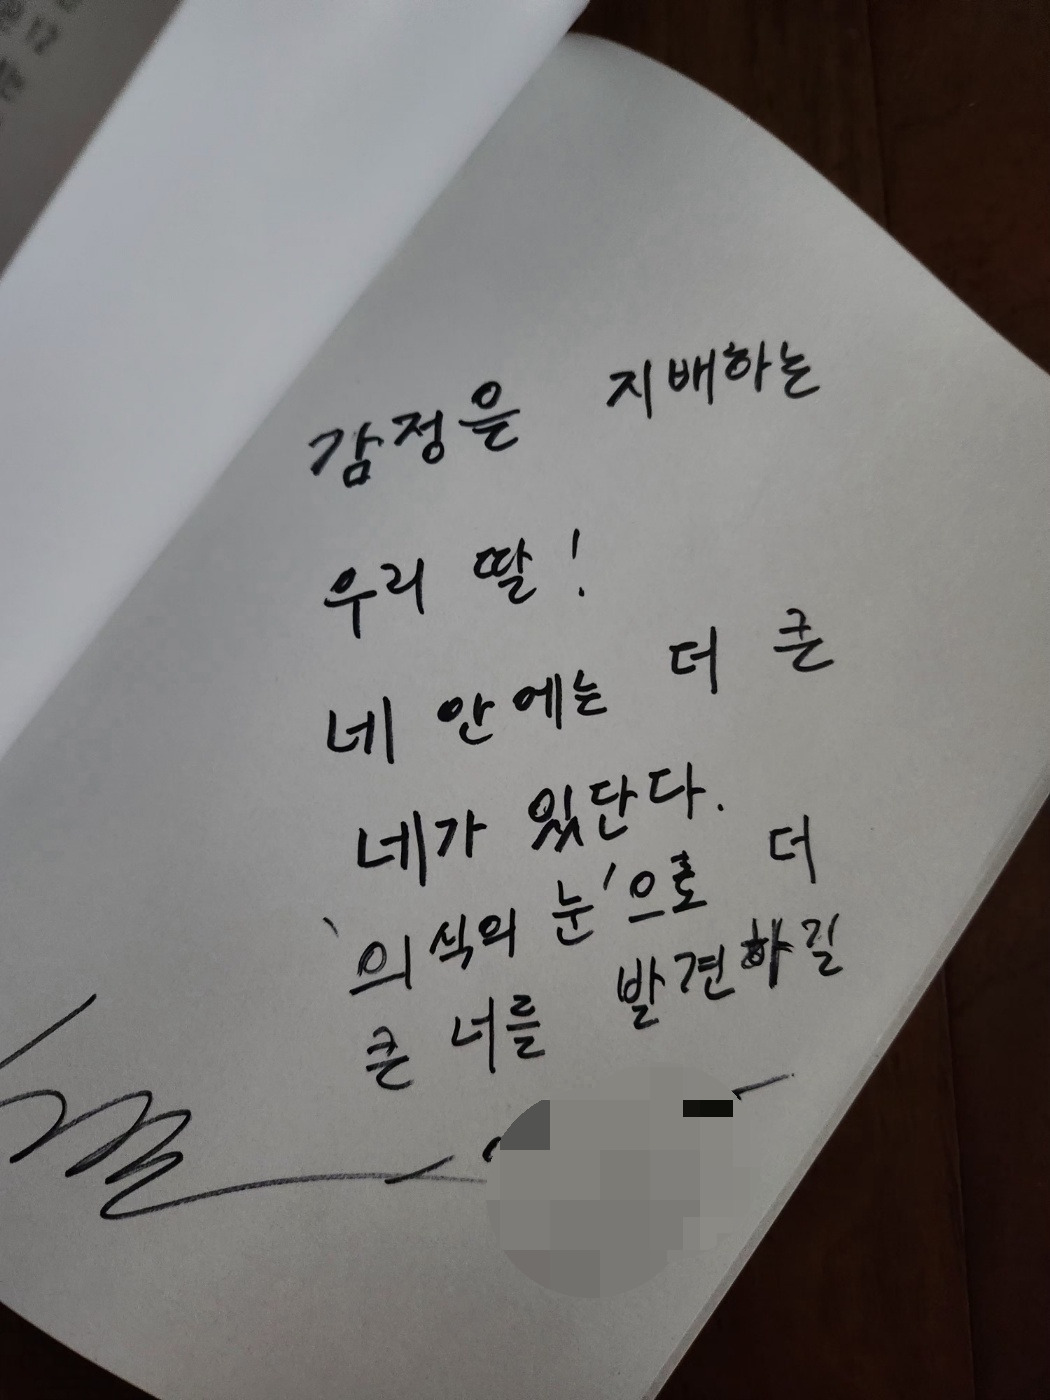 감정을 지배하는
우리 딸!
네 안에는 더 큰
네가 있단다.
'의식의 눈'으로 더
큰 너를 발견하길